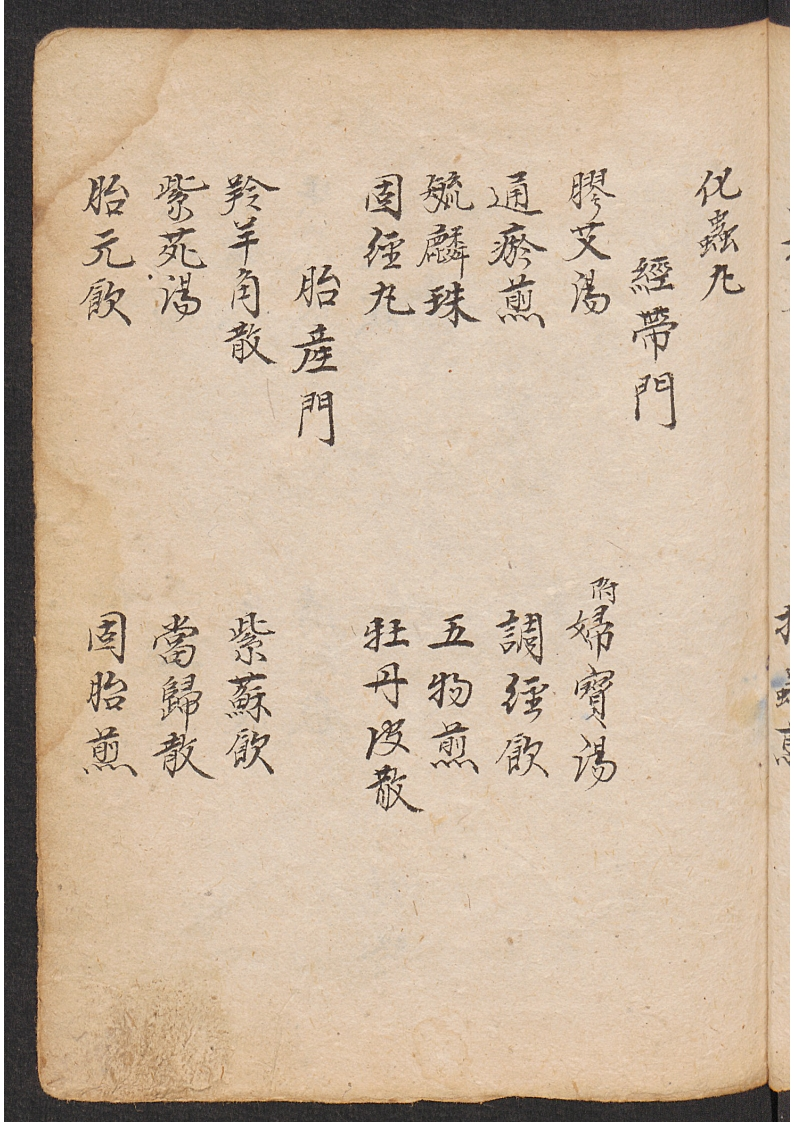 化蟲丸
經帶門
膠艾湯　附婦寶湯
通瘀煎　調經飲
毓麟珠　五物煎
固經丸　牡丹皮散
胎產門
羚羊角散　紫蘇飲
紫苑湯　當歸散
胎元飲　固胎煎